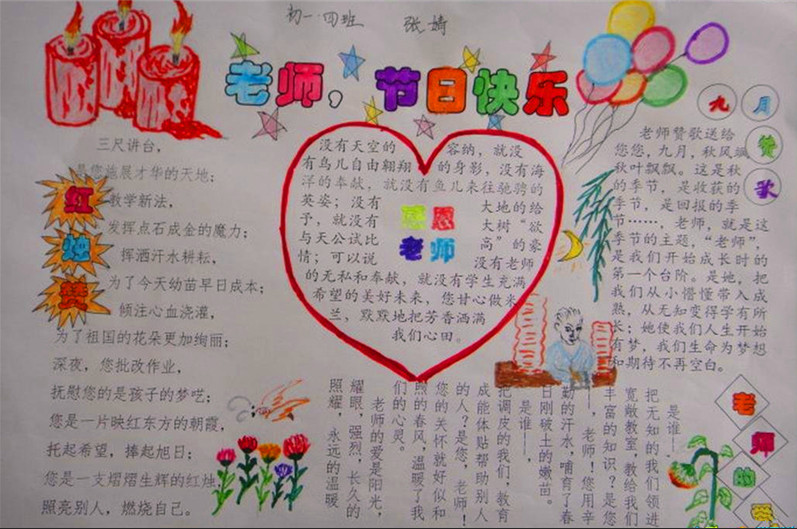 初一.四班 张婍
老师，节日快乐
红烛赞
三尺讲台，
是您施展才华的天地；
教学新法，
发挥点石成金的魔力；
挥洒汗水耕耘，
为了今天幼苗早日成本；
倾注心血浇灌，
为了祖国的花朵更加绚丽；
深夜，您批改作业，
抚慰您的是孩子的梦呓；
您是一片映红东方的朝霞，
托起希望，捧起旭日；
您是一支熠熠生辉的红烛，
照亮别人，燃烧自己。
感恩
老师
没有天空的 容纳，就没
有鸟儿自由翱翔 的身影，没有海
洋的奉献，就没有鱼儿来往驰骋的
英姿；没有 大地的给
予，就没有 大树“欲
与天公试比 高”的豪
情；可以说 没有老师
的无私和奉献，就没有学生充满
希望的美好未来，您甘心做米
兰，默默地把芳香洒满
我们心田。
九月赞歌
老师赞歌送给
您您，九月，秋风飒
秋叶飘飘。这是秋
的季节，是收获的
季节，是回报的季
节……，老师，就是这
季节的主题，“老师”，
是我们开始成长时的
第一个台阶。是她，把
我们从小懵懂带入成
熟，从无知变得学有所
长；她使我们人生开始
有梦，我们生命为梦想
和期待不再空白。
老师的
是谁——，
把无知的我们领进
宽敞教室，教给我们
丰富的知识？是您
——，老师！您用辛
勤的汗水，哺育了春
日刚破土的嫩苗。
是谁——，
把调皮的我们，教育
成能体贴帮助别人
的人？是您，老师！
您的关怀就好似和
煦的春风，温暖了我
们的心灵。
老师的爱是阳光，
耀眼，强烈，长久的
照耀，永远的温暖